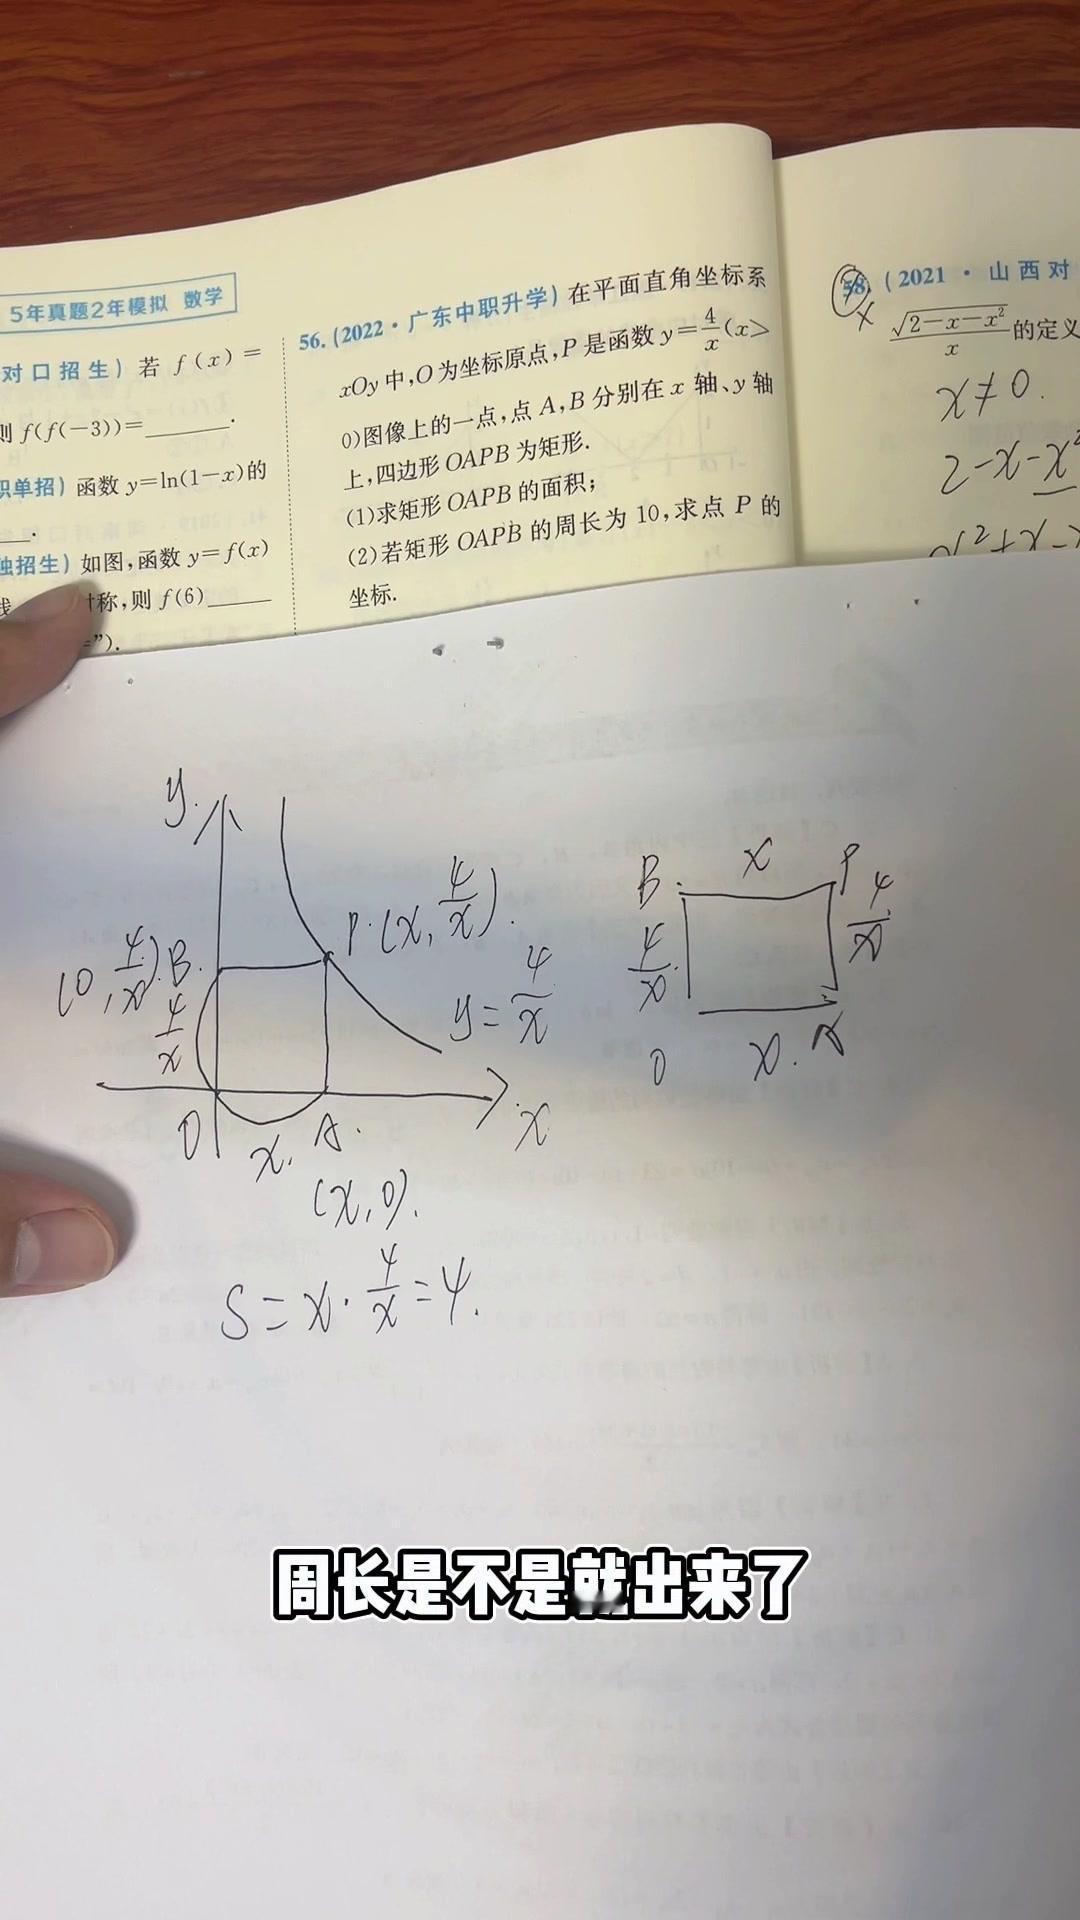 5年真题2年模拟 数学
对口招生) 若 f(x)=
则 f(f(-3))=______.
职单招) 函数 y=ln(1-x)的
.
独招生) 如图,函数 y=f(x)
对称,则 f(6)____
=”).
56. (2022·广东中职升学) 在平面直角坐标系
xOy 中,O 为坐标原点,P 是函数 y=4/x(x>
0)图像上的一点,点 A,B 分别在 x 轴、y 轴
上,四边形 OAPB 为矩形.
(1)求矩形 OAPB 的面积;
(2)若矩形 OAPB 的周长为 10,求点 P 的
坐标.
58. (2021·山西对
x
√(2-x-x²)/x 的定义
x≠0.
2-x-x²
y.
P.(x, 4/x).
(0, 4/x) B.
4/x
y=4/x
O
x.
A.
x
(x,0).
S=x·4/x=4.
B
x
P
4/x
4/x
O
x.
A
周长是不是就出来了